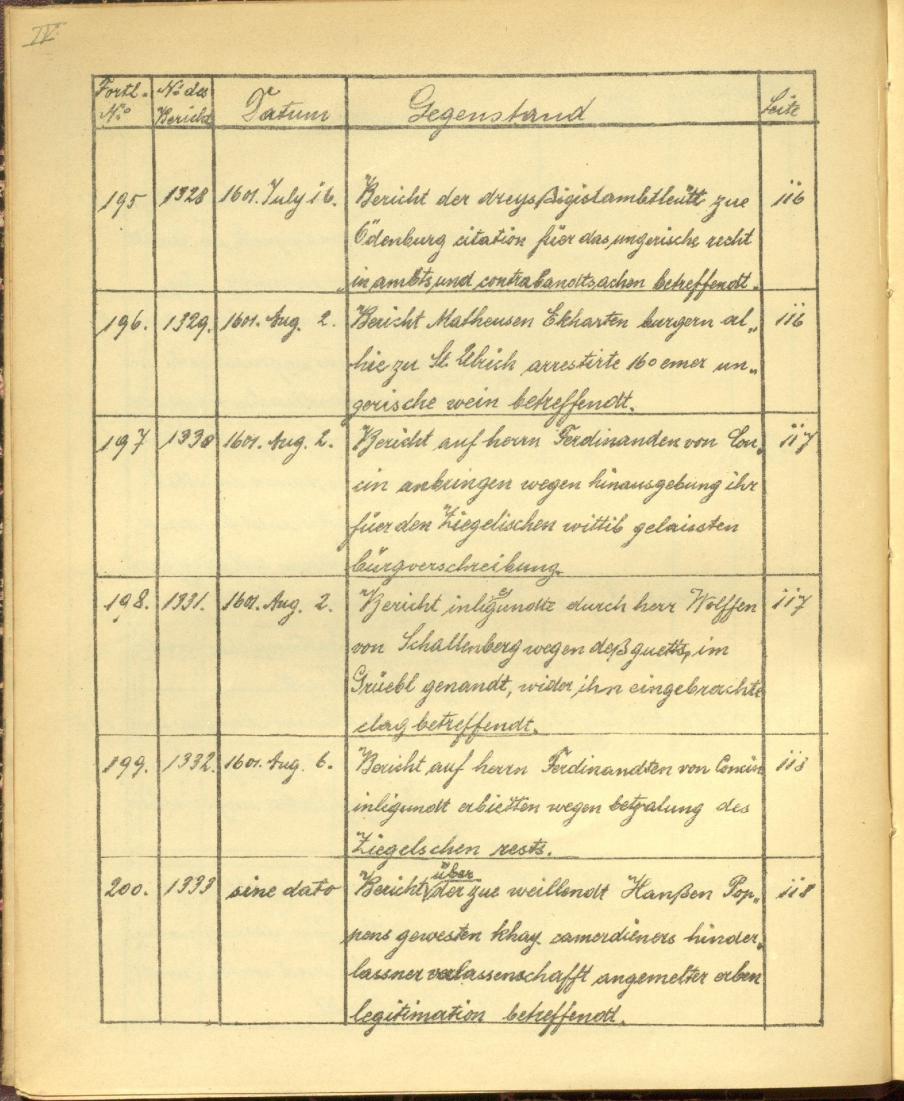 IV.
Fortl. No No des Bericht Datum Gegenstand Seite
195 1328 1601. July 16. Bericht der dreyssigistambtleütt zue 116
Ödenburg citation füer das ungerische recht
in ambts und contrabandtsachen betreffendt.
196. 1329. 1601. Aug. 2. Bericht Matheusen Ekharten burgern al„ 116
hie zu St. Ulrich arrestirte 160 emer un„
gerische wein betreffendt.
197 1330 1601. Aug. 2. Bericht auf herrn Ferdinanden von Con„ 117
cin anbringen wegen hinausgebung ihr
füer den Ziegelischen wittib gelaissten
bürgverschreibung.
198. 1331. 1601. Aug. 2. Bericht inligundte durch herr Wolffen 117
von Schallenberg wegen deß guetts, im
Grüebl genandt, wider ihn eingebrachte
clag betreffendt.
199. 1332. 1601. Aug. 6. Bericht auf herrn Ferdinandten von Concin
inligundt erbietten wegen betzalung des
Ziegelschen rests.
200. 1333 sine dato Bericht über der zue weillendt Hanßen Pop„ 118
pens gewesten khay. camerdieners hinder„
lassner verlassenschafft angemelter erben
legitimation betreffendt.